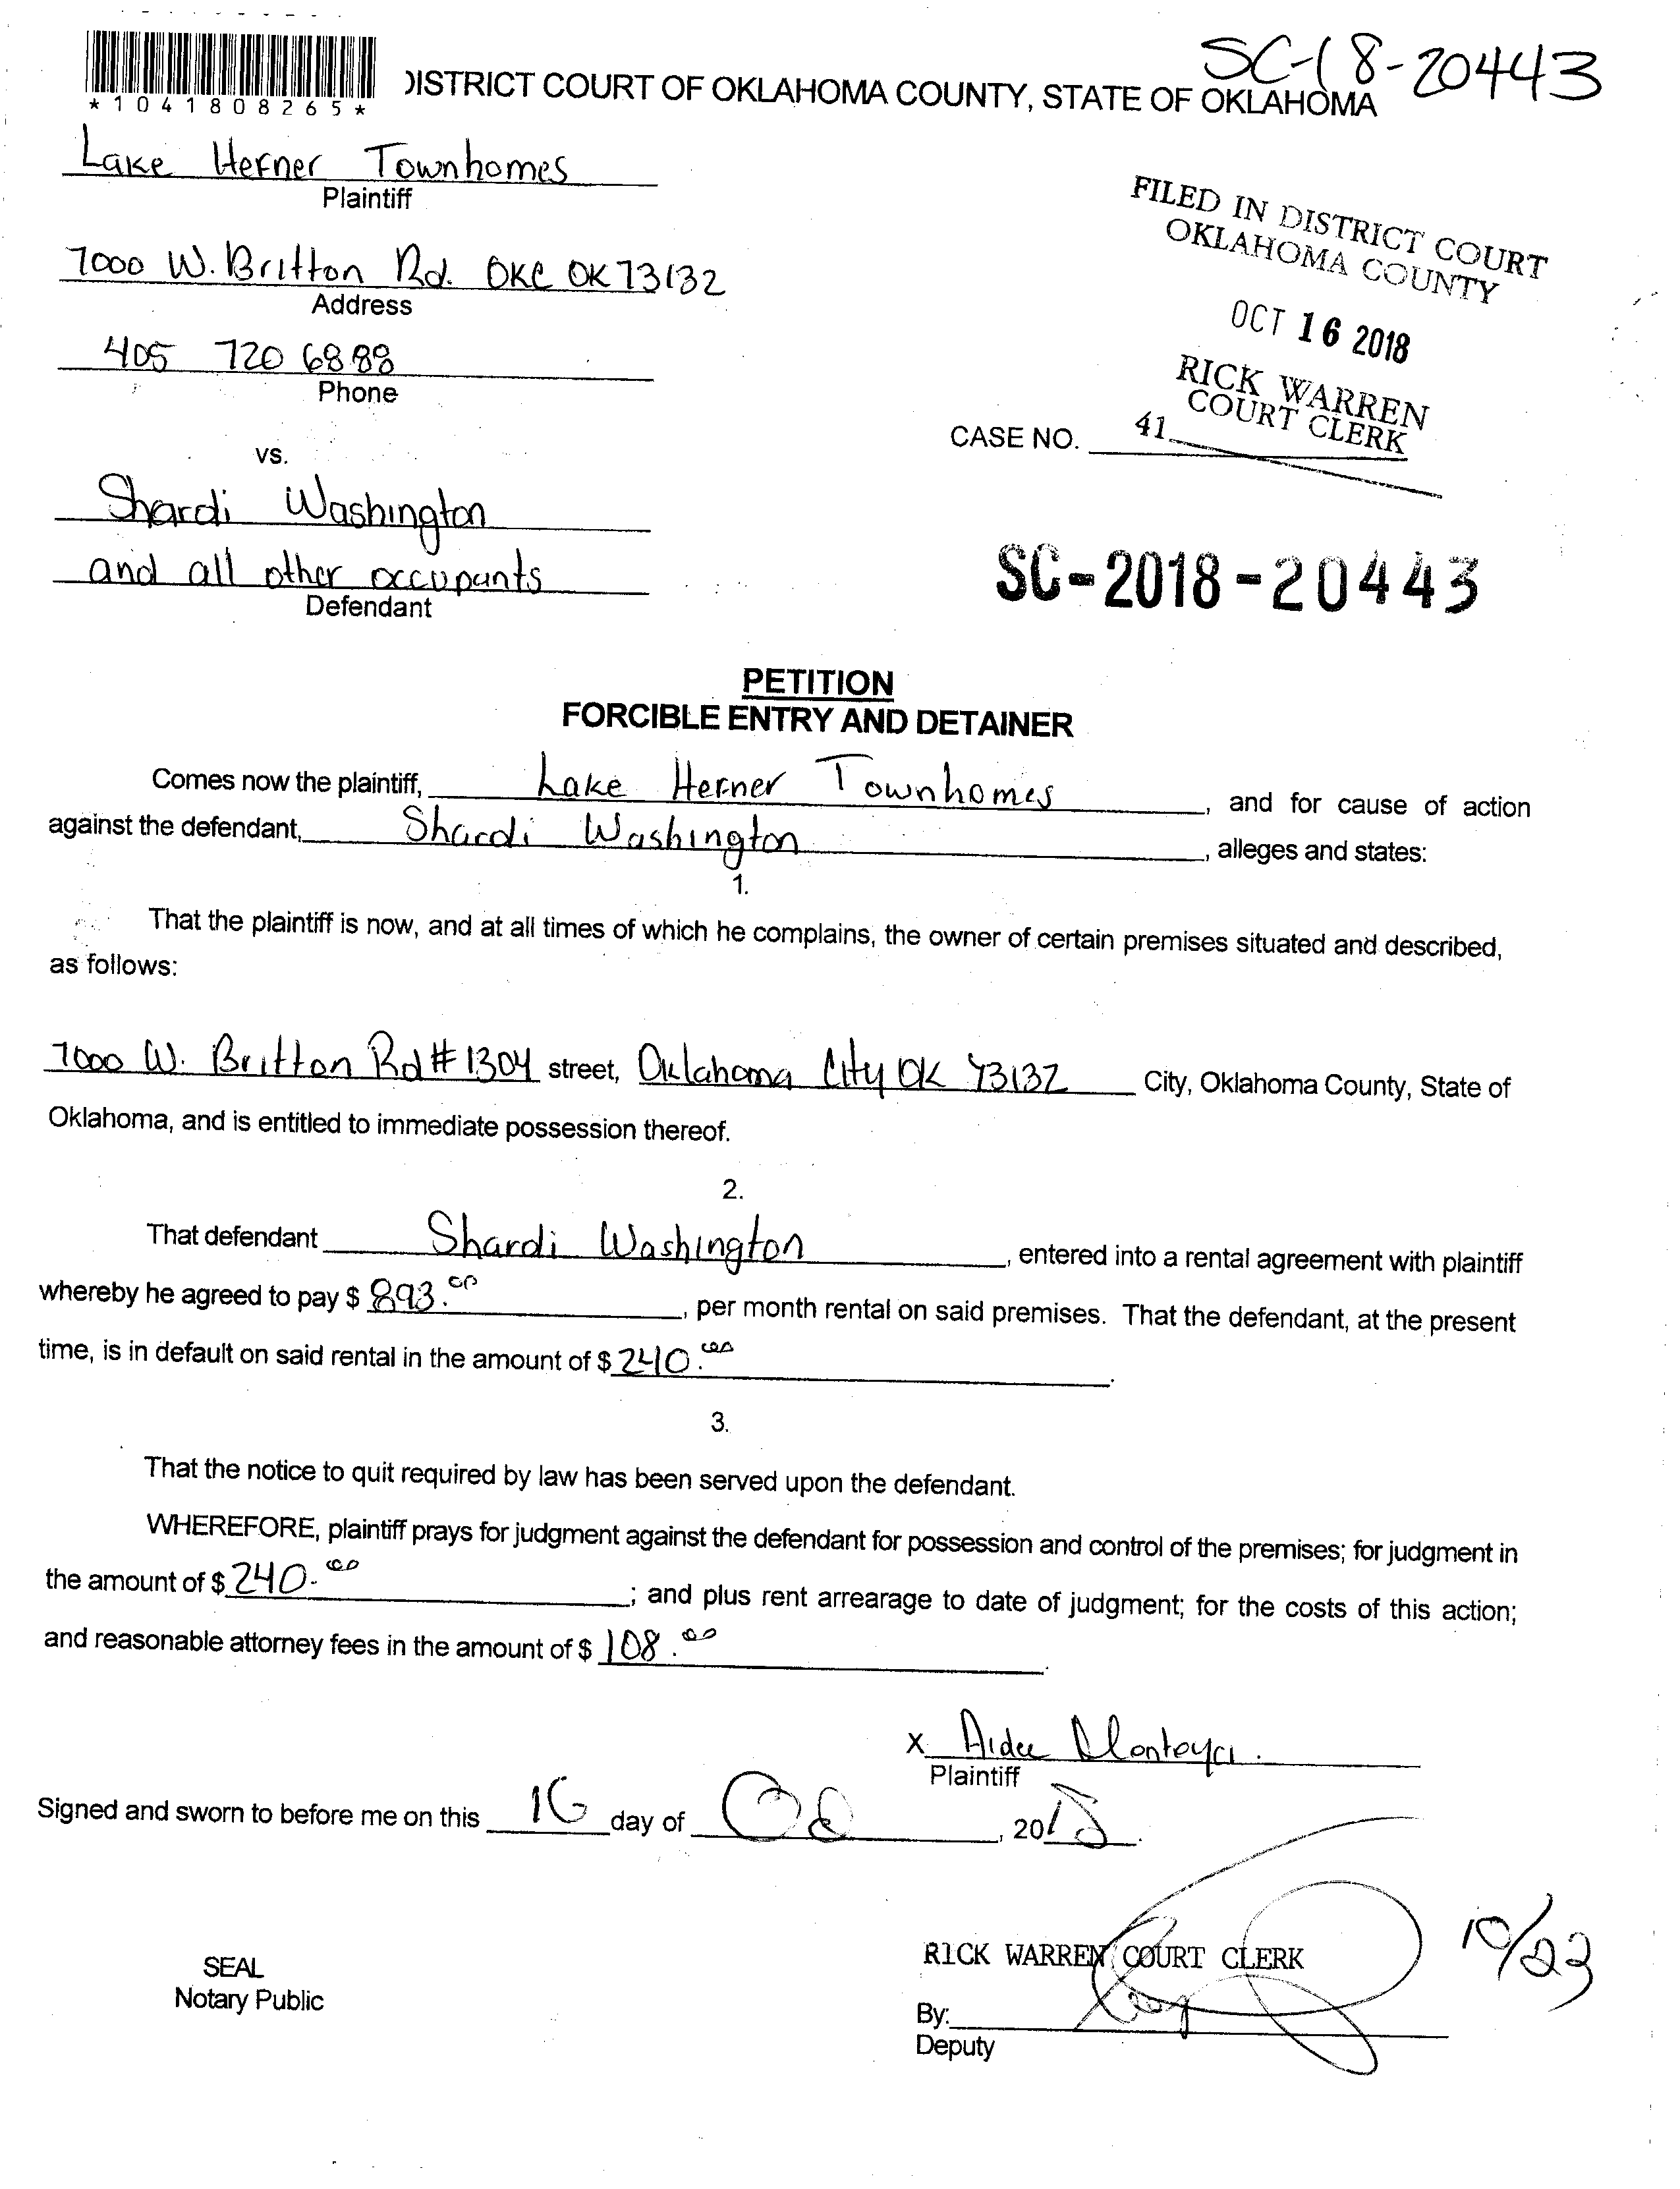 SC-18-20443
*1041808265*
DISTRICT COURT OF OKLAHOMA COUNTY, STATE OF OKLAHOMA
Lake Hefner Townhomes
Plaintiff
FILED IN DISTRICT COURT
OKLAHOMA COUNTY
7000 W. Britton Rd. OKC OK 73132
Address
OCT 16 2018
405 720 6888
Phone
RICK WARREN
COURT CLERK
CASE NO. 41
vs.
Shardi Washington
and all other occupants
Defendant
SC-2018-20443
PETITION
FORCIBLE ENTRY AND DETAINER
Comes now the plaintiff, Lake Hefner Townhomes, and for cause of action
against the defendant, Shardi Washington, alleges and states:
1.
That the plaintiff is now, and at all times of which he complains, the owner of certain premises situated and described,
as follows:
7000 W. Britton Rd #1304 street, Oklahoma City OK 73132 City, Oklahoma County, State of
Oklahoma, and is entitled to immediate possession thereof.
2.
That defendant Shardi Washington, entered into a rental agreement with plaintiff
whereby he agreed to pay $ 893.00, per month rental on said premises. That the defendant, at the present
time, is in default on said rental in the amount of $ 240.00.
3.
That the notice to quit required by law has been served upon the defendant.
WHEREFORE, plaintiff prays for judgment against the defendant for possession and control of the premises; for judgment in
the amount of $ 240.00; and plus rent arrearage to date of judgment; for the costs of this action;
and reasonable attorney fees in the amount of $ 108.00.
X Aidee Montoya.
Plaintiff
Signed and sworn to before me on this 16 day of Oct, 2018.
10/23
RICK WARREN COURT CLERK
SEAL
Notary Public
By:
Deputy